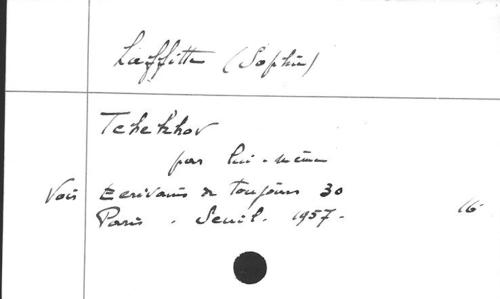 Laffitte (Sophie)
Tchekhov
par lui-même
Voir Ecrivains de toujours 30
Paris. Seuil. 1957-
16